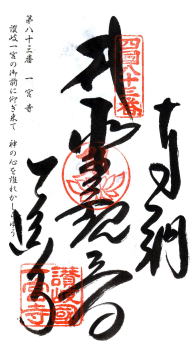 奉納
四國八十三番
聖観音
一宮寺
讃岐國一宮寺
第八十三番 一宮寺
讃岐一宮の御前に仰ぎ来て 神の心を誰れかしらゆう